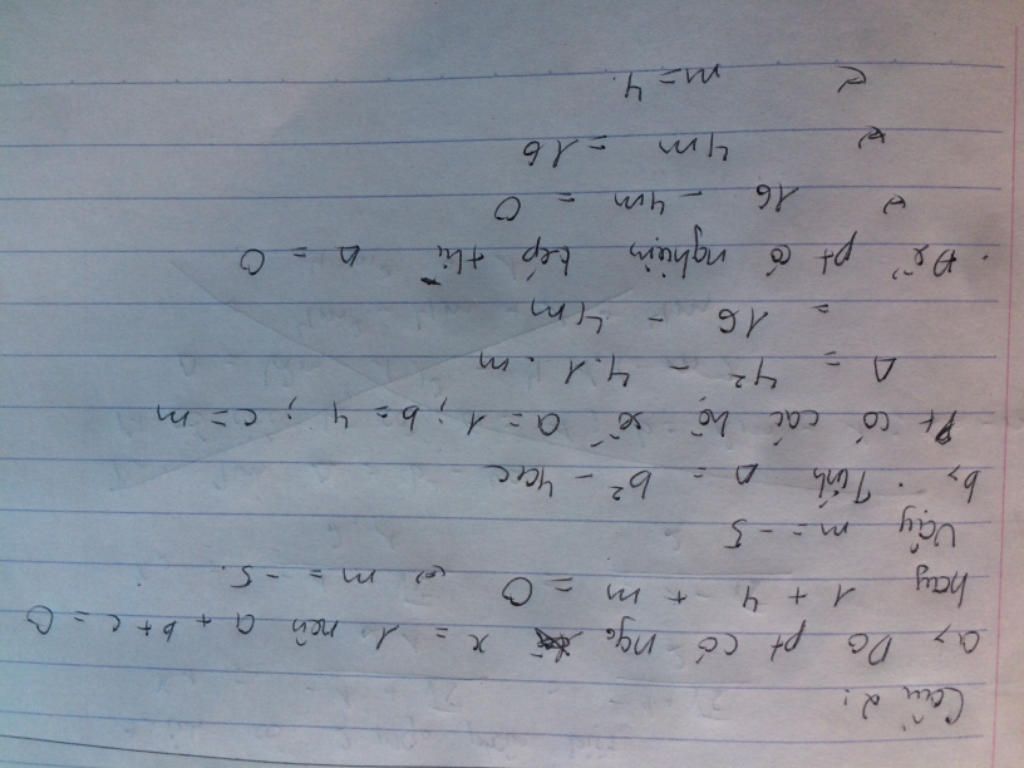 Câu 2:
a, Do pt có ngo x = 1 nên a + b + c = 0
hay 1 + 4 + m = 0 ⇔ m = -5.
Vậy m = -5
b, . Tính Δ = b² - 4ac
Pt có các hệ số a = 1 ; b = 4 ; c = m
Δ = 4² - 4.1.m
= 16 - 4m
. Để pt có nghiệm kép thì Δ = 0
⇔ 16 - 4m = 0
⇔ 4m = 16
⇔ m = 4.